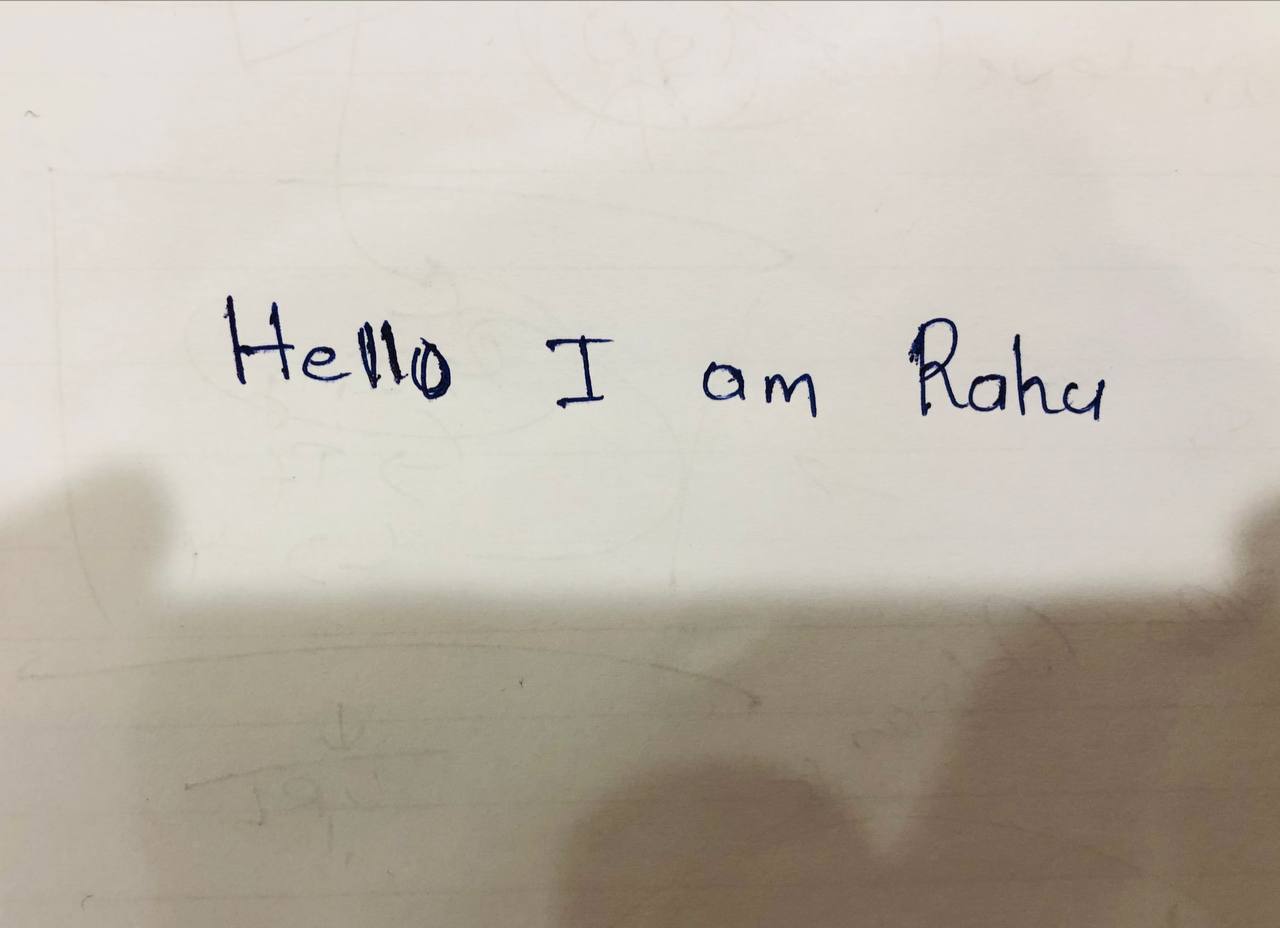 Hello I am Rahu